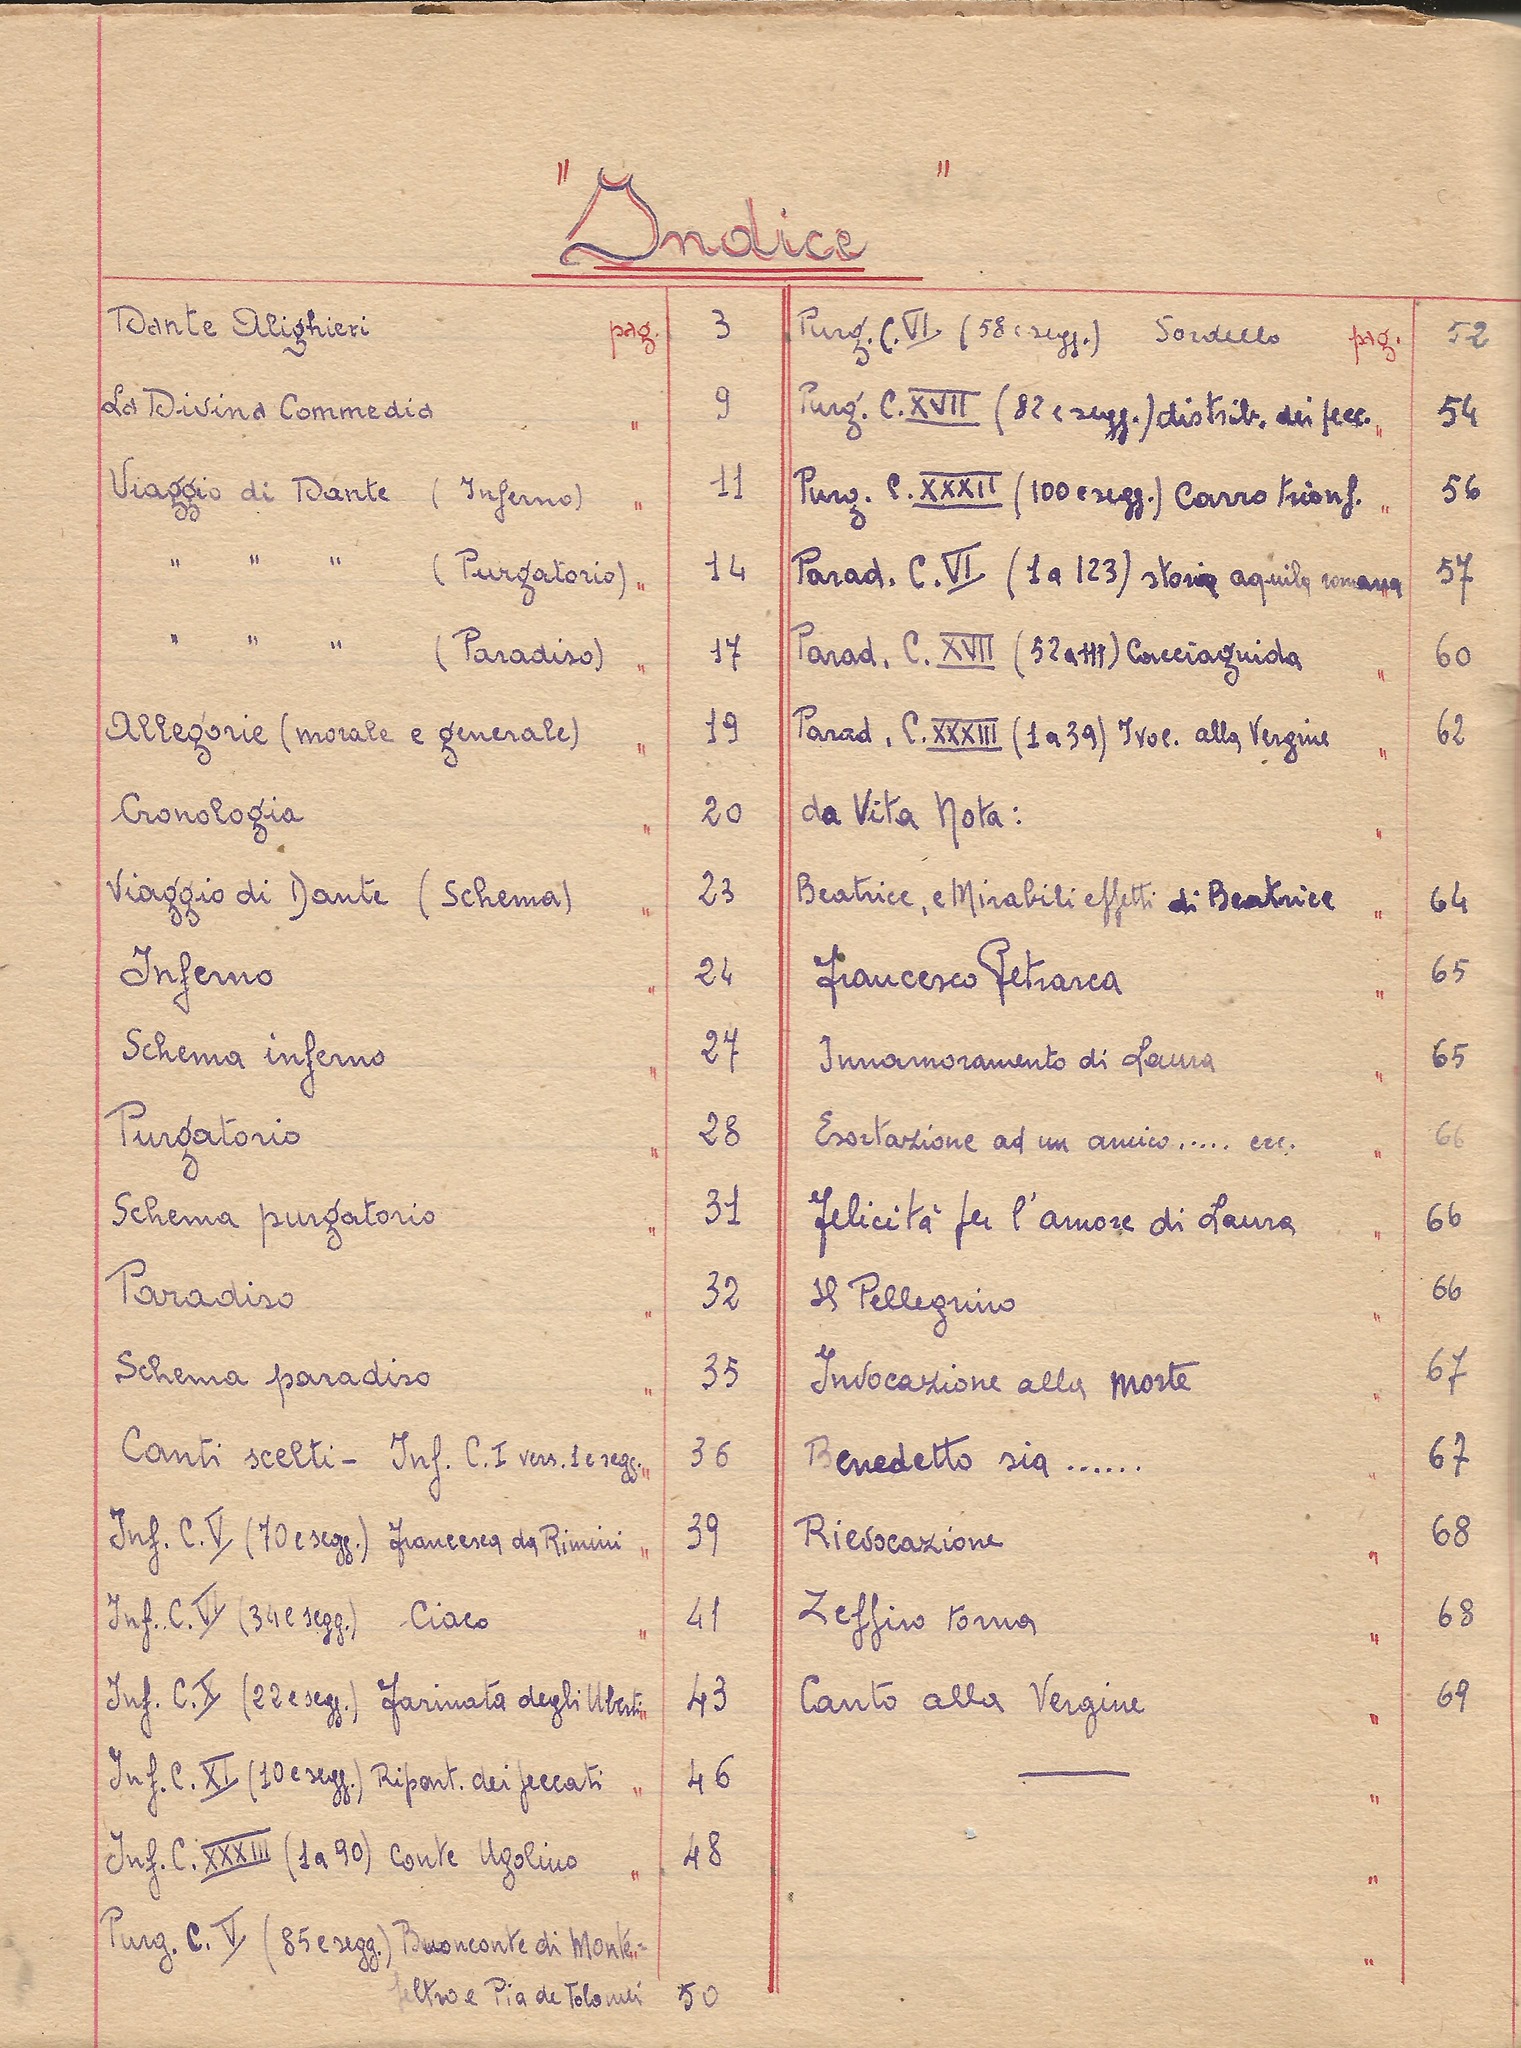 "Indice"
Dante Alighieri pag. 3
La Divina Commedia " 9
Viaggio di Dante (Inferno) " 11
" " " (Purgatorio) " 14
" " " (Paradiso) " 17
Allegorie (morale e generale) " 19
Cronologia " 20
Viaggio di Dante (Schema) " 23
Inferno " 24
Schema inferno " 27
Purgatorio " 28
Schema purgatorio " 31
Paradiso " 32
Schema paradiso " 35
Canti scelti - Inf. C. I vers. 1 e segg. " 36
Inf. C. V (70 e segg.) Francesca da Rimini " 39
Inf. C. VI (34 e segg.) Ciaco " 41
Inf. C. X (22 e segg.) Farinata degli Uberti " 43
Inf. C. XI (10 e segg.) Ripart. dei peccati " 46
Inf. C. XXXIII (1 a 90) Conte Ugolino " 48
Purg. C. V (85 e segg.) Buonconte di Monte=
feltro e Pia de Tolomei 50
Purg. C. VI (58 e segg.) Sordello pag. 52
Purg. C. XVII (82 e segg.) distrib. dei pecc. " 54
Purg. C. XXXII (100 e segg.) Carro trionf. " 56
Parad. C. VI (1 a 123) storia aquila romana " 57
Parad. C. XVII (52 a 111) Cacciaguida " 60
Parad. C. XXXIII (1 a 39) Ivoc. alla Vergine " 62
da Vita Nota: "
Beatrice, e Mirabili effetti di Beatrice " 64
Francesco Petrarca " 65
Innamoramento di Laura " 65
Esortazione ad un amico..... ecc. " 66
Felicità per l'amore di Laura " 66
Il Pellegrino " 66
Invocazione alla morte " 67
Benedetto sia ...... " 67
Rievocazione " 68
Zeffiro torna " 68
Canto alla Vergine " 69
"
"
"